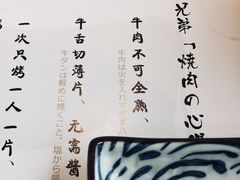 兄弟「燒肉の心
牛肉不可全熟、
牛肉は火を入れすぎず
牛舌切薄片、元需醬
牛タンは軽めに焼くこと。塩から
一次只烤一人一片、